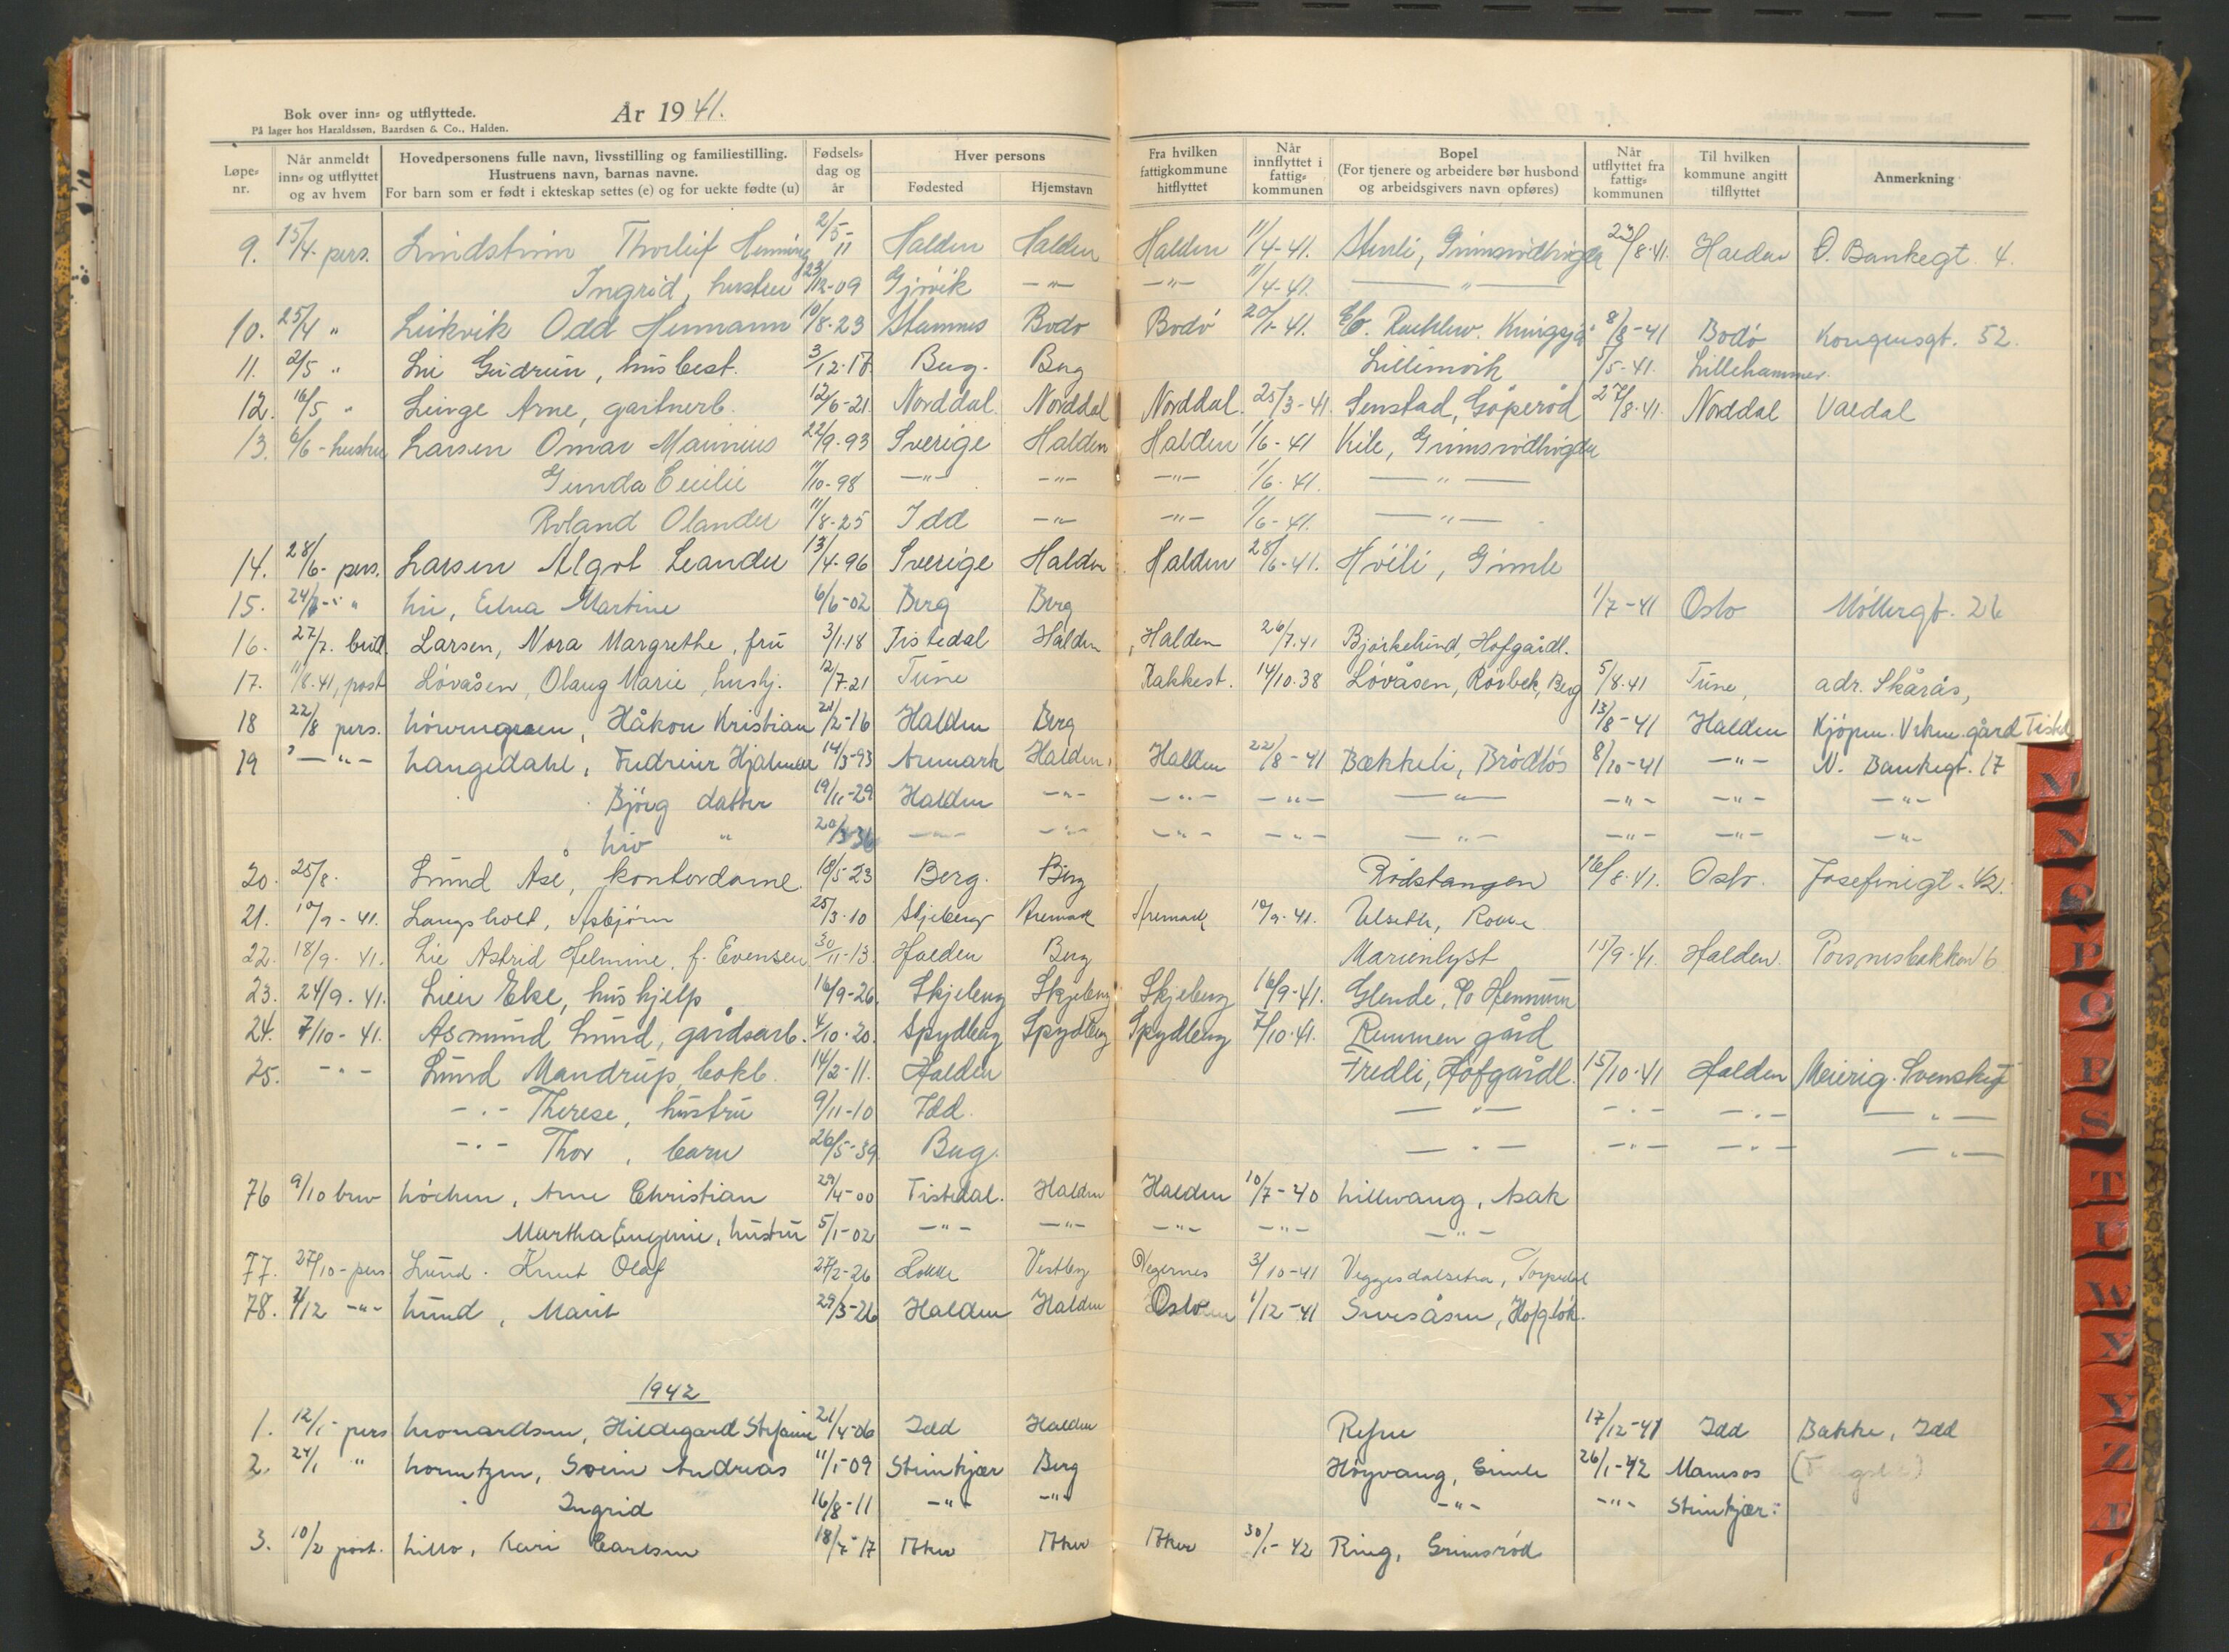 Bok over inn- og utflyttede.
På lager hos Haraldssøn, Baardsen & Co., Halden.
År 1941.
Løpe-nr. Når anmeldt inn- og utflyttet og av hvem Hovedpersonens fulle navn, livsstilling og familiestilling. Hustruens navn, barnas navne. For barn som er født i ekteskap settes (e) og for uekte fødte (u) Fødsels-dag og år Hver persons Fødested Hjemstavn Fra hvilken fattigkommune hitflyttet Når innflyttet i fattig-kommunen Bopel (For tjenere og arbeidere bør husbond og arbeidsgivers navn opføres) Når utflyttet fra fattig-kommunen Til hvilken kommune angitt tilflyttet Anmerkning
9. 15/4 pers. Lindstrøm Thorleif Henning 2/5-11 Halden Halden Halden 11/4-41. Stenli, Grimsrødhøgda 23/8-41. Halden O. Bankegt. 4.
Ingrid, hustru 23/12-09 Gjøvik -"- -"- 11/4-41. -"-
10. 25/4 " Leikvik Odd Hermann 10/8-23 Stamnes Bodø Bodø 20/1-41. 8/8-41 Bodø Kongensgt. 52.
11. 2/5 " Lie Gudrun, husbest. 3/12-18 Berg. Berg Lillimvik 5/5-41. Lillehammer.
12. 16/5 " Linge Arne, gartnerb. 12/6-21. Norddal. Norddal Norddal. 25/3-41. Senstad, Gåperød 27/8-41. Norddal Valdal
13. 6/6 - hustru Larsen Omar Marinius 22/9-93 Sverige Halden Halden 1/6-41 Kile, Grimsrødhøgda
Gunda Cecilie 11/10-98 -"- -"- -"- 1/6-41. -"-
Roland Olander 11/8-25 Idd -"- -"- 1/6-41. -"-
14. 28/6- pers. Larsen Algot Leander 13/4-96 Sverige Halden Halden 28/6-41. Hvili, Gimle
15. " Lie, Edna Martine 6/6-02 Berg Berg 1/7-41 Oslo Møllergt. 26
16. 27/7. Larsen, Nora Margrethe, fru 3/1.18 Tistedal Halden Halden 26/7.41 Bjørkelund, Hofgårdl.
17. 11/8.41, post Løvåsen, Olaug Marie, hushj. 12/7-21 Tune Rakkest. 14/10.38 Løvåsen, Rørbek, Berg 5/8.41 Tune, adr. Skårås,
18 22/8 pers. Løvengreen, Håkon Kristian 21/2-16 Halden Berg 13/8-41 Halden Kjøpm. gård Tisted
19 " -"- Langedahl, Fredrik Hjalmar 14/3-93 Aremark Halden Halden 22/8-41 Bækkeli, Brødløs 8/10-41 -"- N. Bankegt. 17
Bjørg datter 19/11-29 Halden -"- -"- -"- -"- -"- -"- -"-
Liv " 20/3-36 -"- -"- -"- -"- -"- -"- -"- -"-
20. 25/8. Lund Åse, kontordame. 18/5-23 Berg. Berg Rødstangen 16/8.41. Oslo. Josefinegt. 42.
21. 10/9-41. Langsholt, Asbjørn 25/3-10 Skjeberg Aremark Aremark 10/9-41. Ulseth, Rokke
22. 18/9-41. Lie Astrid Helmine, f. Evensen 30/11-13. Halden Berg Marienlyst 15/9-41. Halden. Porsnesbakken 6
23. 24/9.41. Lier Else, hushjelp 16/9-26. Skjeberg Skjeberg Skjeberg 16/9-41. Glende, c/o Hennum
24. 7/10-41. Asmund Lund, gårdsarb. 4/10.20. Spydberg Spydberg Spydberg 7/10.41. Remmen gård
25. -"- Lund Mandrup, bokb. 14/2-11. Halden Fredli, Hofgårdl. 15/10-41 Halden Meierig. Svenskeg
-"- Therese, hustru 9/11-10 Idd. -"- -"- -"- -"-
-"- Thor, barn 26/5-39 Berg. -"- -"- -"- -"-
76 9/10 brev Løchen, Arne Christian 29/4-00 Tistedal. Halden Halden 10/7-40 Lillevang, Asak
Martha Eugenie, hustru 5/1-02 -"- -"- -"- -"- -"-
77. 27/10-pers Lund. Knut Olaf 27/2-26 Rokke Vestby Degernes 3/10-41 Veggesdalsetra, Torpedal
78. 7/12 -"- Lund, Marit 29/3-26 Halden Halden Oslo 1/12-41 Svesåsen, Hofgløk.
1942
1. 12/1- pers Leonardsen, Hildegard Stefanie 21/4-06 Idd Halden Refne 17/12-41 Idd Bakke, Idd
2. 24/1 " Lorentzen, Svein Andreas 11/1-09 Steinkjær Berg Høyvang, Gimle 26/1-42 Namsos
Ingrid 16/8-11 -"- -"- -"- -"- Steinkjær.
3. 10/2 post. Lillo, Kari Carlsen 18/7-17 Aker Aker Aker 30/1-42 Ring, Grimsrød
V X O P Q R S T U W X Y Z Æ